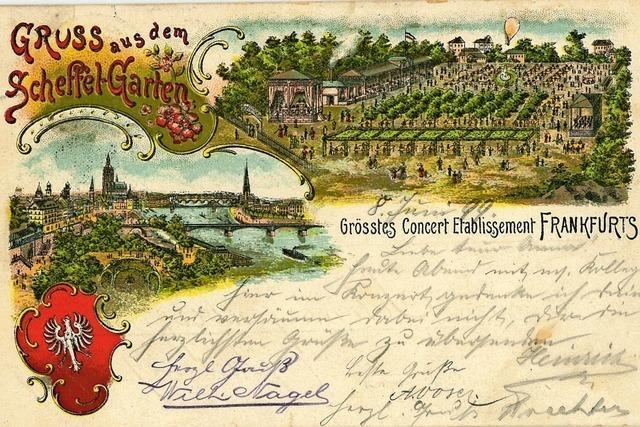 GRUSS aus dem
Scheffel-Garten
Grösstes Concert Etablissement FRANKFURTS
8. Juni 99.
Liebe
heute Abend mit
hier im Konzert, gedenke ich
und versäume dabei nicht
herzlichsten Grüße zu übersenden
Heinrich
herzl Gruß
Walt. Nagel
beste Grüße
herzl. Gruß